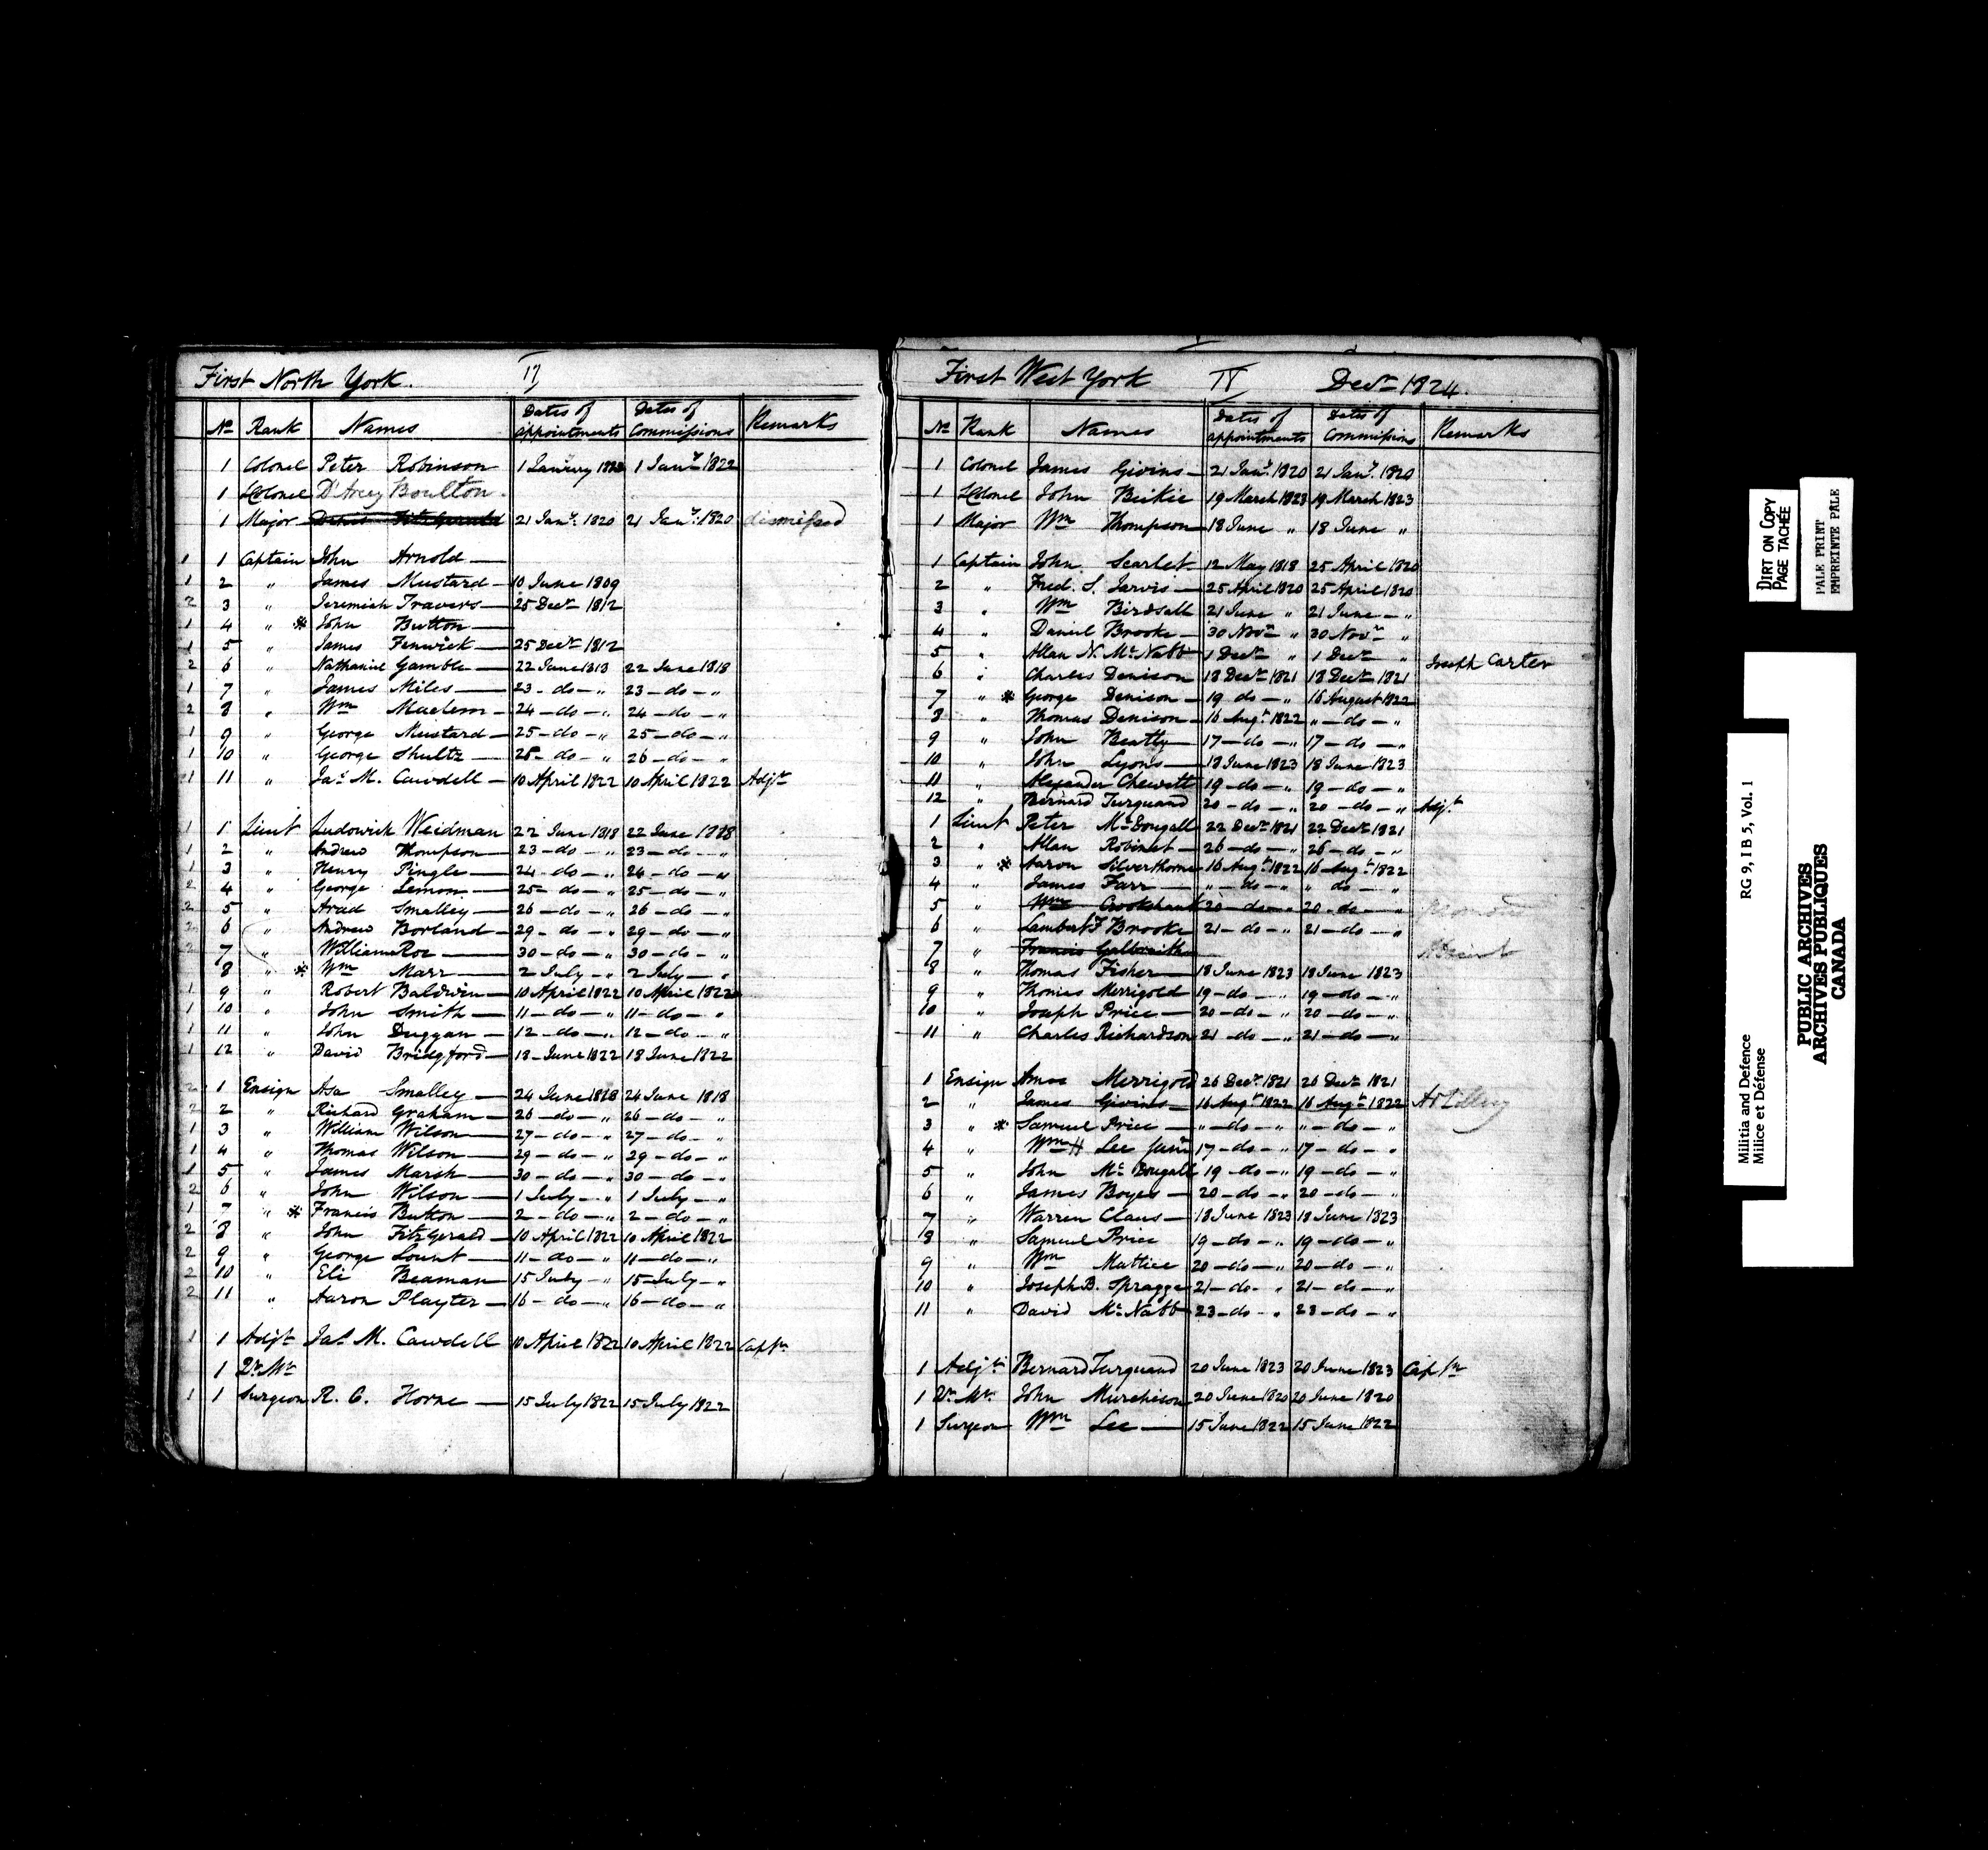 First North York.
No Rank Names Dates of appointments Dates of Commissions Remarks
1 Colonel Peter Robinson 1 January 1822 1 Jany 1822
1 LColonel D'Arcy Boulton.
1 Major Fitzgerald 21 Jany. 1820 21 Jany. 1820 dismissed
1 1 Captain John Arnold —
1 2 " James Mustard — 10 June 1809
2 3 " Jeremiah Travers — 25 Decr 1812
1 4 " * John Button —
1 5 " James Fenwick — 25 Decr 1812
2 6 " Nathaniel Gamble — 22 June 1818 22 June 1818
1 7 " James Miles — 23 - do - " 23 - do - "
2 8 " Wm Maclem — 24 - do - " 24 - do - "
1 9 " George Mustard — 25 - do - " 25 - do - "
1 10 " George Shultz — 26 - do - " 26 - do - "
1 11 " Jas. M. Cawdell — 10 April 1822 10 April 1822 Adjt
1 1 Lieut Ludowick Weidman 22 June 1818 22 June 1818
1 2 " Andrew Thompson — 23 - do - " 23 - do - "
1 3 " Henry Pingle — 24 - do - " 24 - do - "
2 4 " George Lemon — 25 - do - " 25 - do - "
2 5 " Arad Smalley — 26 - do - " 26 - do - "
2 6 " Andrew Borland — 29 - do - " 29 - do - "
2 7 " William Roe — 30 - do - " 30 - do - "
1 8 " * Wm Marr — 2 July - " 2 July - "
1 9 " Robert Baldwin — 10 April 1822 10 April 1822
1 10 " John Smith — 11 - do - " 11 - do - "
1 11 " John Duggan — 12 - do - " 12 - do - "
1 12 " David Bridgford — 18 - June 1822 18 June 1822
2 1 Ensign Asa Smalley — 24 June 1818 24 June 1818
2 2 " Richard Graham — 26 - do - " 26 - do - "
1 3 " William Wilson — 27 - do - " 27 - do - "
1 4 " Thomas Wilson — 29 - do - " 29 - do - "
1 5 " James Marsh — 30 - do - " 30 - do - "
2 6 " John Wilson — 1 July - " 1 July - "
1 7 " * Francis Button — 2 - do - " 2 - do - "
2 8 " John FitzGerald — 10 April 1822 10 April 1822
2 9 " George Lount — 11 - do - " 11 - do - "
2 10 " Eli Beaman — 15 July - " 15 July - "
2 11 " Aaron Playter — 16 - do - " 16 - do - "
1 1 Adjt Jas. M. Cawdell 10 April 1822 10 April 1822 Captn
1 Qr. Mr
1 1 Surgeon R. C. Horne — 15 July 1822 15 July 1822
First West York Decr 1824.
No Rank Names Dates of appointments Dates of Commissions Remarks
1 Colonel James Givins — 21 Jany. 1820 21 Jany. 1820
1 LColonel John Beikie 19 March 1823 19 March 1823
1 Major Wm Thompson — 18 June " 18 June "
1 Captain John Scarlet — 12 May 1818 25 April 1820
2 " Fred. S. Jarvis — 25 April 1820 25 April 1820
3 " Wm Birdsall 21 June " 21 June - "
4 " Daniel Brooke — 30 Novr " 30 Novr "
5 " Allan N. McNabb 1 Decr " 1 Decr "
6 " Charles Denison 18 Decr 1821 18 Decr 1821 Joseph Carter
7 " * George Denison — 19 do - " 16 August 1822
8 " Thomas Denison — 16 Augt. 1822 " - do - "
9 " John Beatty — 17 - do - " 17 - do - "
10 " John Lyons — 18 June 1823 18 June 1823
11 " Alexander Chewett 19 - do - " 19 - do - "
12 " Bernard Turquand 20 - do - " 20 - do - " Adjt.
1 Lieut Peter McDougall 22 Decr 1821 22 Decr 1821
2 " Allan Robinet — 26 - do - " 26 - do - "
3 " * Aaron Silverthorne 16 Augt 1822 16 Augt 1822
4 " James Farr — " - do - " " do - "
5 " Wm Crookshank 20 - do - " 20 - do - "
6 " Lambert F Brooke — 21 - do - " 21 - do - "
7 " Francis Galbraith
8 " Thomas Fisher — 18 June 1823 18 June 1823
9 " Thomas Merrigold 19 - do - " 19 - do - "
10 " Joseph Price — 20 - do - " 20 - do - "
11 " Charles Richardson 21 - do - " 21 - do - "
1 Ensign Amos Merrigold 26 Decr. 1821 26 Decr 1821
2 " James Givins — 16 Augt 1822 16 Augt 1822 Artillery
3 " * Samuel Price — " - do - " " - do - "
4 " Wm H Lee Junr 17 - do - " 17 - do - "
5 " John McDougall 19 - do - " 19 - do - "
6 " James Boyes — 20 - do - " 20 - do - "
7 " Warren Claus — 18 June 1823 18 June 1823
8 " Samuel Price 19 - do - " 19 - do - "
9 " Wm Mattice 20 - do - " 20 - do - "
10 " Joseph B. Spragge 21 - do - " 21 - do - "
11 " David McNabb 23 - do - " 23 - do - "
1 Adjt. Bernard Turquand 20 June 1823 20 June 1823 Captn
1 Qr. Mr. John Murchison 20 June 1820 20 June 1820
1 Surgeon Wm Lee — 15 June 1822 15 June 1822
DIRT ON COPY
PAGE TACHÉE
PALE PRINT
EMPREINTE PÂLE
RG 9, I B 5, Vol. 1
Militia and Defence
Milice et Défense
PUBLIC ARCHIVES
ARCHIVES PUBLIQUES
CANADA